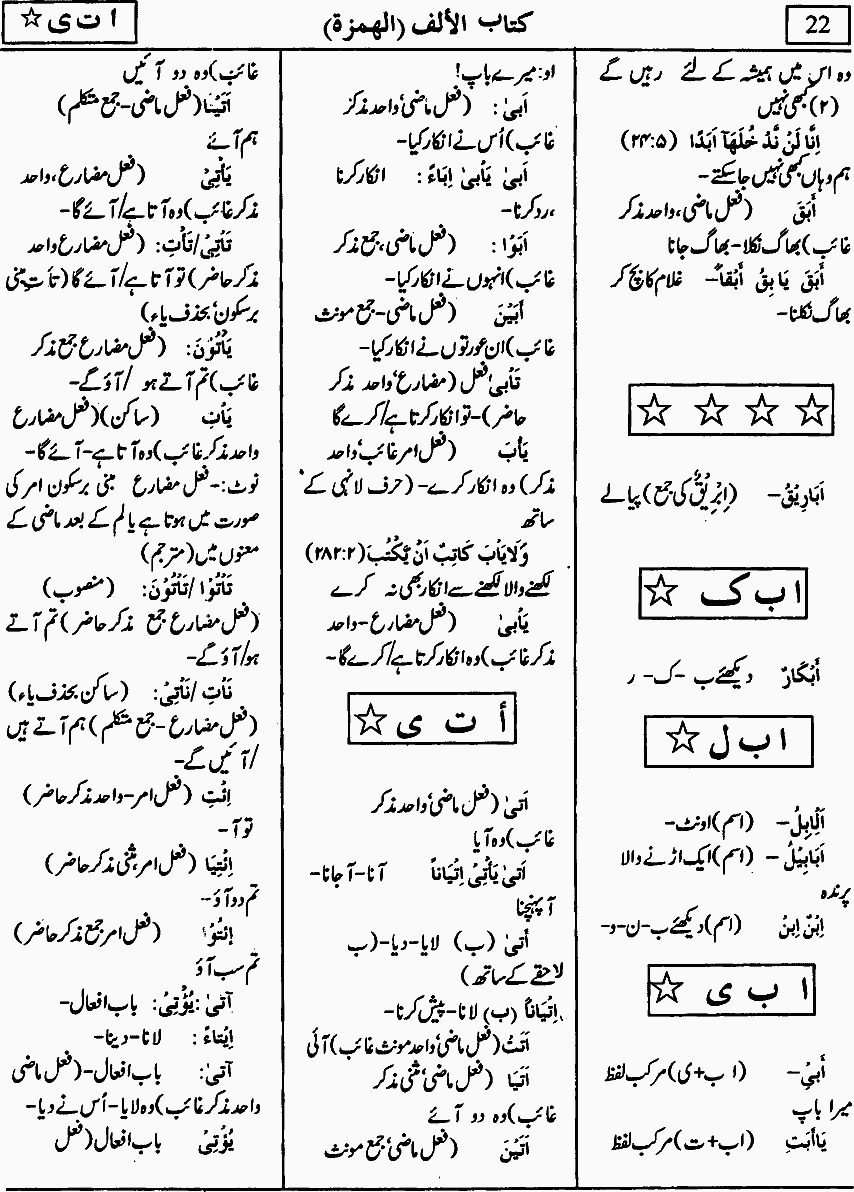 22
کتاب الألف (الهمزة)
ا ت ی ☆
وہ اس میں ہمیشہ کے لئے رہیں گے
(۲) کبھی نہیں
اِنَّا لَنْ نَّدْ خُلَهَآ اَبَدًا (۲۴:۵)
ہم وہاں کبھی نہیں جا سکتے-
أَبَقَ (فعل ماضی، واحد مذکر
غائب) بھاگ نکلا- بھاگ جانا
أَبَقَ یَا بِقُ أَبْقاً- غلام کا بچ کر
بھاگ نکلنا-
☆ ☆ ☆ ☆
اَبَارِیْقُ- (اِبْرِیْقٌ کی جمع) پیالے
ا ب ک ☆
أَبْکَارٌ دیکھئے ب-ک-ر
ا ب ل ☆
اَلْاِبِلُ- (اسم) اونٹ-
اَبَابِیْلُ- (اسم) ایک اڑنے والا
پرندہ
اِبْنٌ اِبنُ (اسم) دیکھئے ب-ن-و-
ا ب ی ☆
أَبِیْ- (ا ب+ی) مرکب لفظ
میرا باپ
یَاأَبَتِ (اب+ت) مرکب لفظ
او: میرے باپ!
أَبیٰ: (فعل ماضی، واحد مذکر
غائب) اُس نے انکار کیا-
أَبیٰ یَأبیٰ اِبَاءً: انکار کرنا
،رد کرنا-
اَبَوْا: (فعل ماضی، جمع مذکر
غائب) انہوں نے انکار کیا-
أَبَیْنَ (فعل ماضی- جمع مونث
غائب) ان عورتوں نے انکار کیا-
تَأبیٰ فعل (مضارع، واحد مذکر
حاضر)- تو انکار کرتا ہے/ کرے گا
یَأبَ (فعل امر غائب، واحد
مذکر) وہ انکار کرے- (حرف لا نہی کے
ساتھ
وَلَا یَأبَ کَاتِبٌ اَنْ یَّکْتُبَ (۲۸۲:۲)
لکھنے والا لکھنے سے انکار بھی نہ کرے
یَأبیٰ (فعل مضارع- واحد
مذکر غائب) وہ انکار کرتا ہے/ کرے گا-
أ ت ی ☆
اَتیٰ (فعل ماضی، واحد مذکر
غائب) وہ آیا
اَتیٰ یَأْتِیْ اِتْیَاناً آنا- آ جانا-
آ پہنچنا
أَتیٰ (ب) لایا- دیا- (ب
لاحقے کے ساتھ)
اِتْیَاناً (ب) لانا- پیش کرنا-
اَتَتْ (فعل ماضی، واحد مونث غائب) آئی
اَتَیَا (فعل ماضی، مثنی مذکر
غائب) وہ دو آئے
اَتَیْنَ (فعل ماضی، جمع مونث
غائب) وہ دو آئیں
اَتَیْنَا (فعل ماضی- جمع متکلم)
ہم آئے
یَأْتِیْ (فعل مضارع، واحد
مذکر غائب) وہ آتا ہے/ آئے گا-
تَأْتِیْ/تَأْتِ: (فعل مضارع واحد
مذکر حاضر) تو آتا ہے/ آئے گا (تأت مبنی
برسکون، بحذف یاء)
یَأْتُوْنَ: (فعل مضارع جمع مذکر
غائب) تم آتے ہو / آؤ گے-
یَأْتِ (ساکن) (فعل مضارع
واحد مذکر غائب) وہ آتا ہے- آئے گا-
نوٹ:- فعل مضارع مبنی برسکون امر کی
صورت میں ہوتا ہے یا لم کے بعد ماضی کے
معنوں میں (مترجم)
تَأْتُوْا/تَأْتُوْنَ: (منصوب)
(فعل مضارع جمع مذکر حاضر) تم آتے
ہو/ آؤ گے-
نَأْتِ/نَأْتِیْ: (ساکن بحذف یاء)
(فعل مضارع- جمع متکلم) ہم آتے ہیں
/ آئیں گے-
اِئْتِ (فعل امر- واحد مذکر حاضر)
تو آ-
اِئْتِیَا (فعل امر، مثنی مذکر حاضر)
تم دو آؤ-
اِئْتُوْا (فعل امر جمع مذکر حاضر)
تم سب آؤ
آتیٰ: یُؤْتِیْ: باب افعال-
اِیْتَاءً: لانا- دینا-
آتیٰ: باب افعال- (فعل ماضی
واحد مذکر غائب) وہ لایا- اُس نے دیا-
یُؤْتِیْ باب افعال (فعل